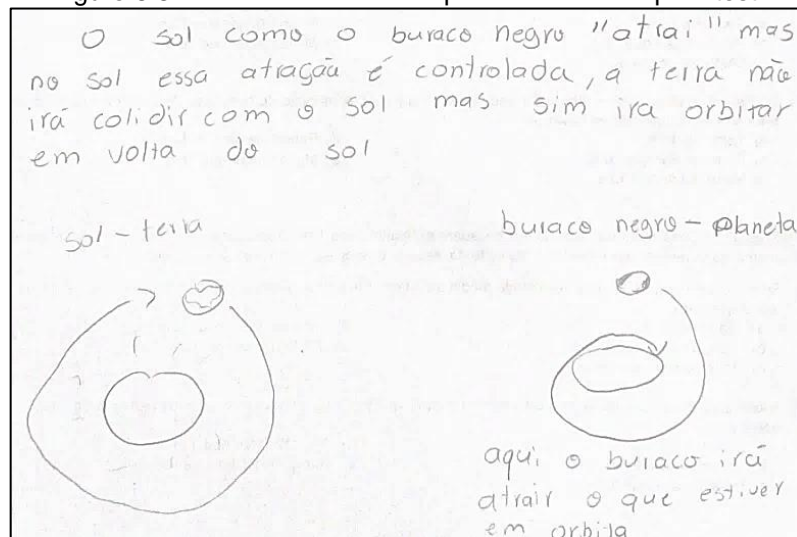 O sol como o buraco negro "atrai" mas
no sol essa atração é controlada, a terra não
irá colidir com o sol mas sim ira orbitar
em volta do sol
sol - terra
buraco negro - planeta
aqui o buraco irá
atrair o que estiver
em orbita